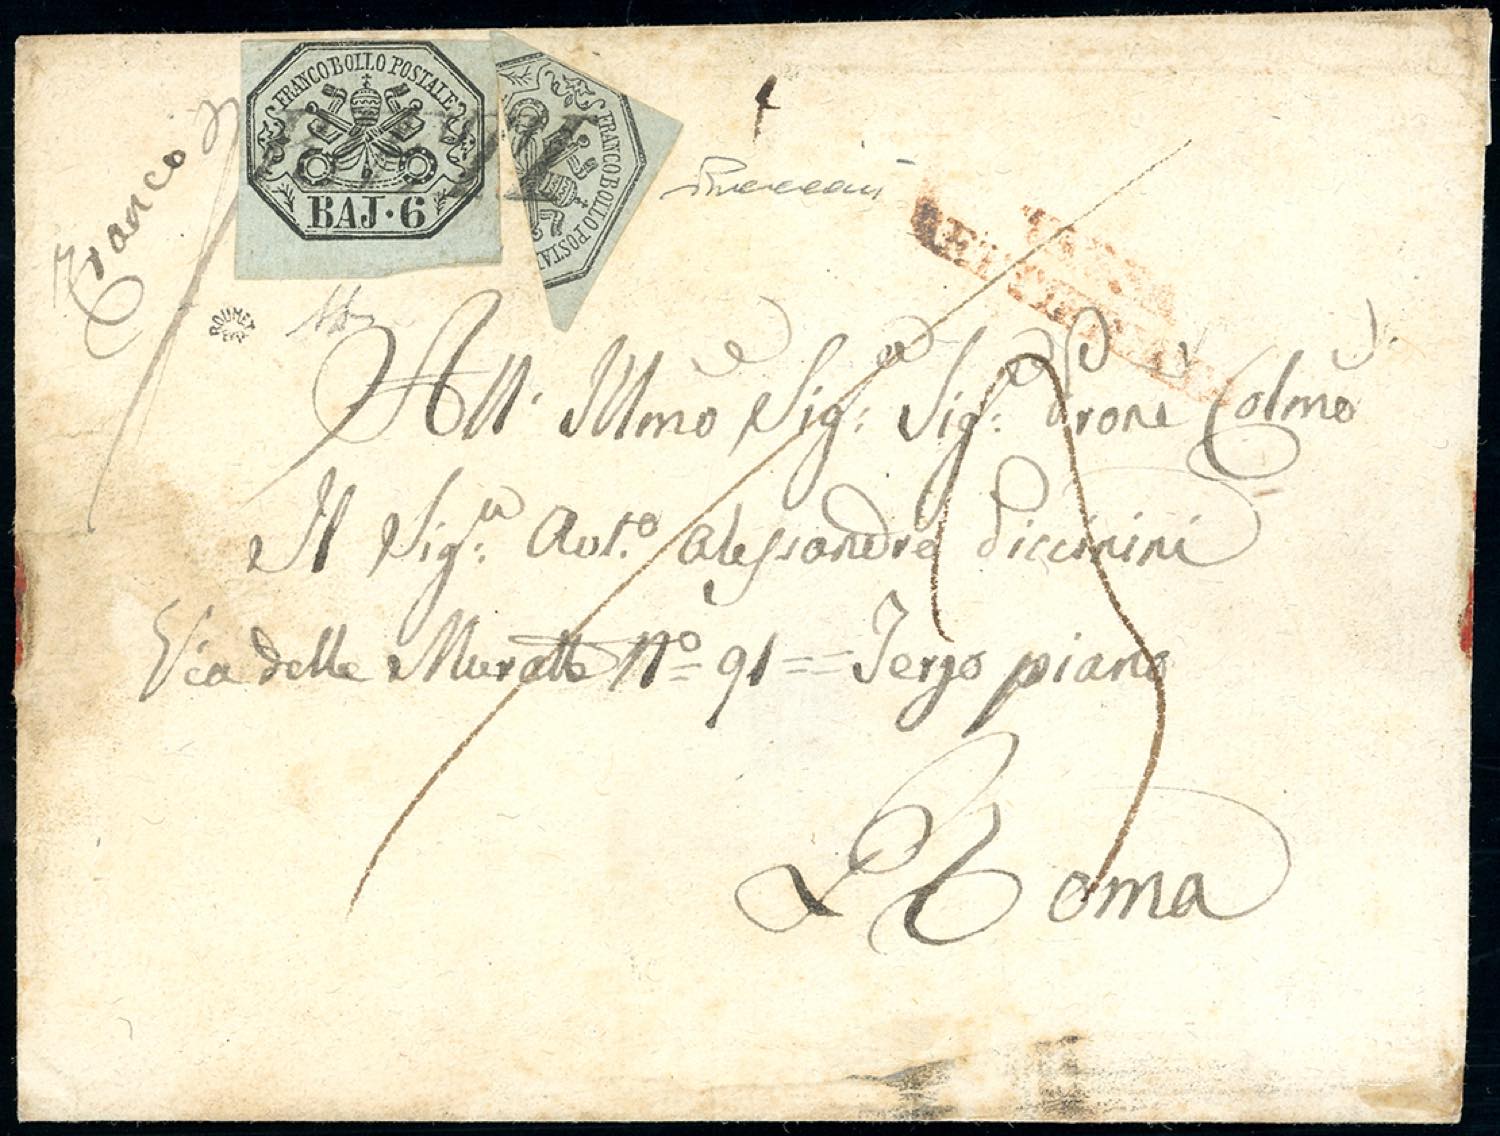 Franco
FRANCO BOLLO POSTALE
BAJ·6
FRANCO BOLLO POSTA
ROUMET
All' Illmo Sig: Sig: Prone Colmo
Il Sig: Alessandro Piccinini
Via delle Muratte No 91 == Terzo piano
Roma